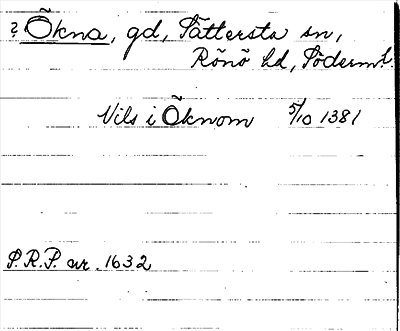 ? Ökna, gd, Tättersta sn,
Rönö hd, Söderml.
Nils i Öknom 5/10 1381
S.R.P. nr. 1632